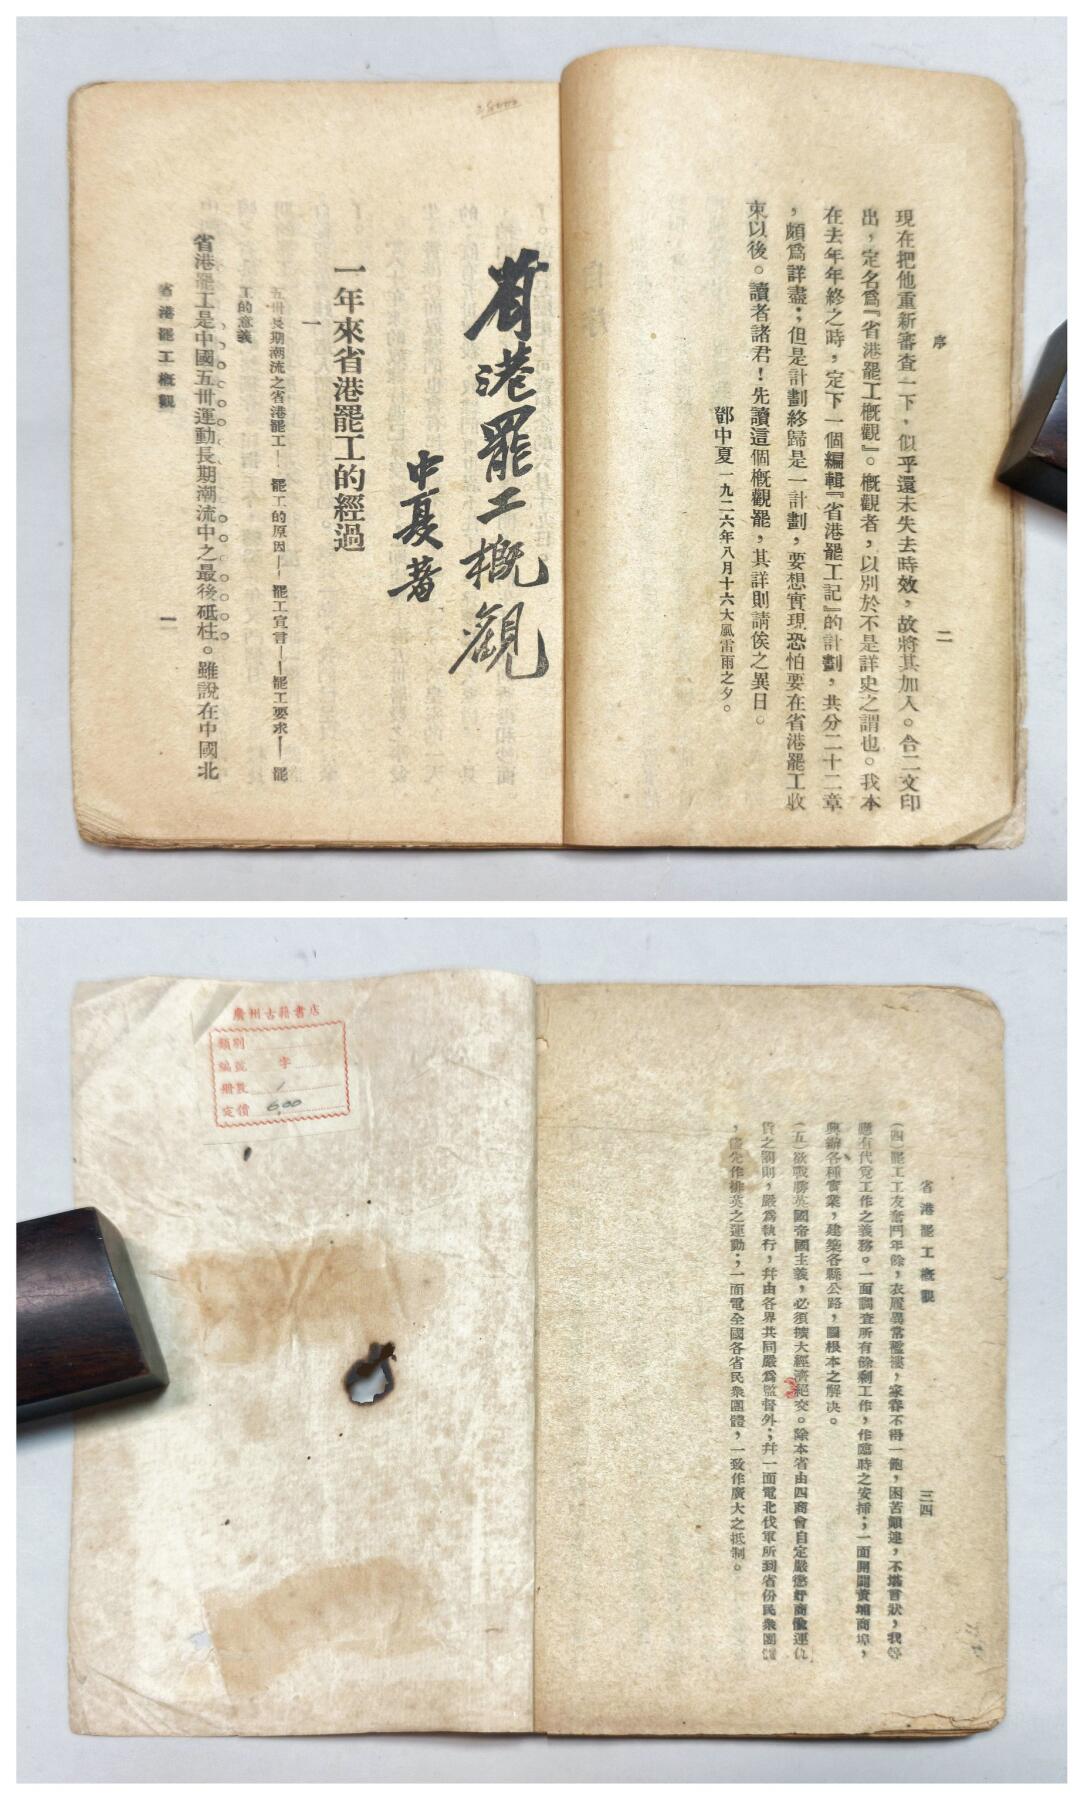 序
二
現在把他重新審查一下，似乎還未失去時效，故將其加入。合二文印
出，定名爲『省港罷工概觀』。概觀者，以別於不是詳史之謂也。我本
在去年年終之時，定下一個編輯『省港罷工記』的計劃，共分二十二章
，頗爲詳盡；但是計劃終歸是一計劃，要想實現恐怕要在省港罷工收
束以後。讀者諸君！先讀這個概觀罷，其詳則請俟之異日。
鄧中夏一九二六年八月十六大風雷雨之夕。
省港罷工概觀
中夏著
一年來省港罷工的經過
一
五卅長期潮流之省港罷工——罷工的原因——罷工宣言——罷工要求——罷
工的意義
省港罷工是中國五卅運動長期潮流中之最後砥柱。雖說在中國北
省港罷工概觀
一
廣州古籍書店
類別
編號 字
冊數 1
定價 6.00
省港罷工概觀
三四
(四)罷工工友奮鬥年餘，衣履異常襤褸，家眷不得一飽，困苦顛連，不堪言狀，我等
應有代覓工作之義務。一面調查所有餘剩工作，作臨時之安插；一面開闢黃埔商埠，
興辦各種實業，建築各縣公路，圖根本之解决。
(五)欲戰勝英國帝國主義，必須擴大經濟絕交。除本省由四商會自定嚴懲奸商偸運仇
貨之罰則，嚴爲執行，幷由各界共同嚴爲監督外；幷一面電北伐軍所到省份民衆團體
，儘先作排英之運動；一面電全國各省民衆團體，一致作廣大之抵制。
3